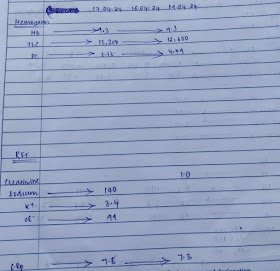 17.04.24 18.04.24 19.04.24
Hemogram
Hb → 9.3 → 9.3
TLC → 13,200 → 12,600
→ 4.99
RFT
1.0
Creatinine
Sodium → 140
K+ → 3.4
Cl- → 99
→ 7.8 → 7.3